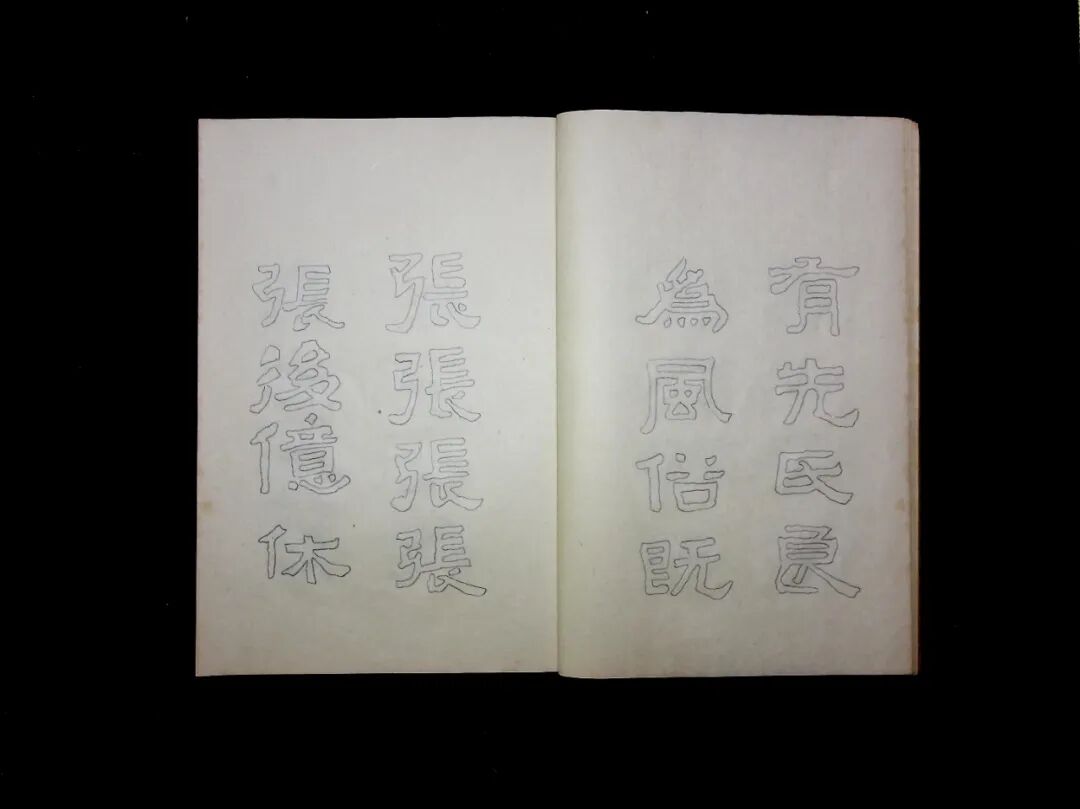 有先氏良
為風俗既
張張張張
張後億休